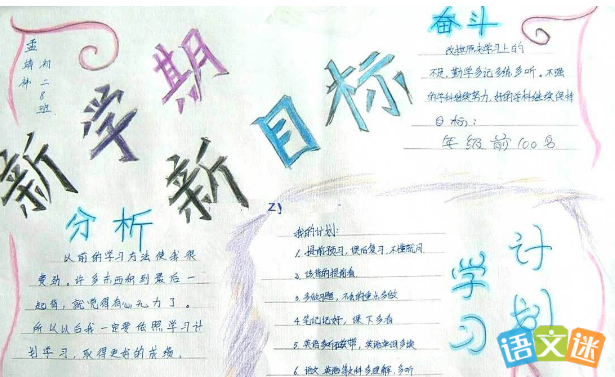 孟 初
婧 二
林 8
班
新学期
新目标
奋斗
改掉历史学习上的
不足,勤学多记多练多听。不强
的学科继续努力,好的学科继续保持
目标:
年级前100名
分析
以前的学习方法使我很
费劲。许多东西积到最后一
起背,就觉得有心无力了。
所以以后我一定要依照学习计
划学习,取得更好的成绩。
我的计划:
1.提前预习,课后复习,不懂就问
2.该背的提前背
3.多做习题,不会的重点多做
4.笔记记好,课下多看
5.英语多听磁带,英语单词多读
6.语文,英语等文科多理解,多听
学习
计划
语文迷